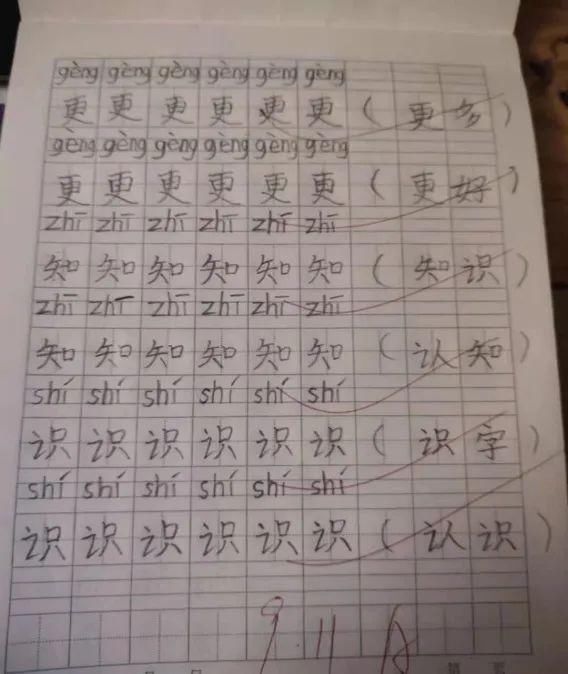 gèng gèng gèng gèng gèng gèng
更 更 更 更 更 更 ( 更 多 )
gèng gèng gèng gèng gèng gèng
更 更 更 更 更 更 ( 更 好 )
zhī zhī zhī zhī zhī zhī
知 知 知 知 知 知 ( 知 识 )
zhī zhī zhī zhī zhī zhī
知 知 知 知 知 知 ( 认 知 )
shí shí shí shí shí shí
识 识 识 识 识 识 ( 识 字 )
shí shí shí shí shí shí
识 识 识 识 识 识 ( 认 识 )
9.11 A